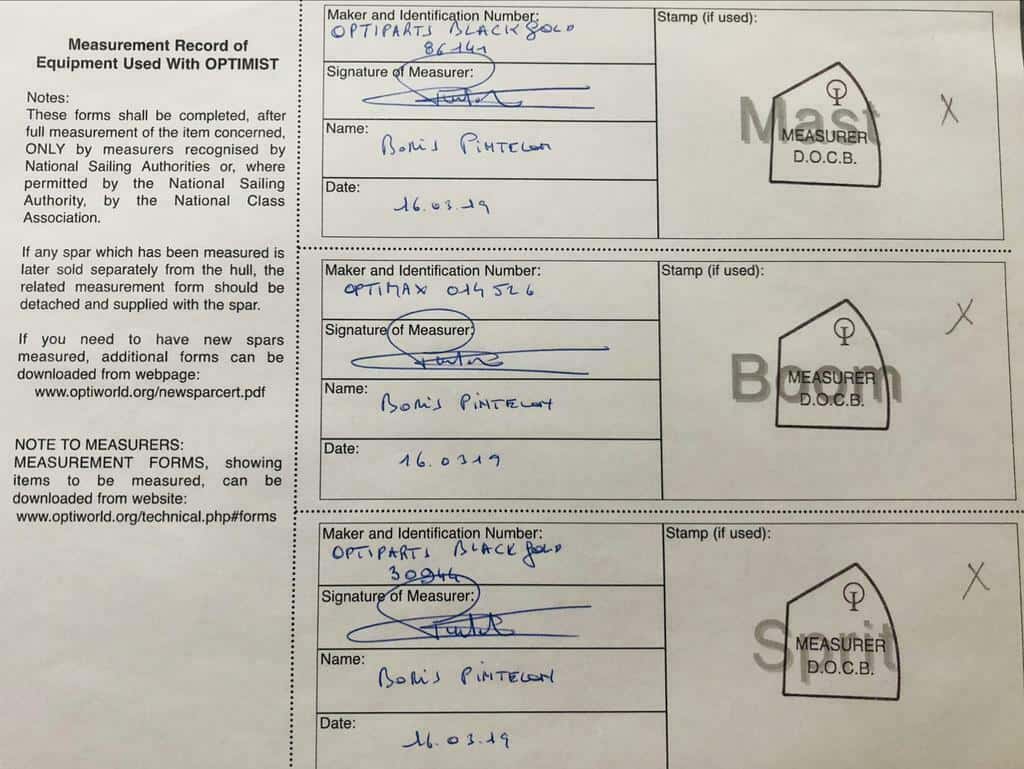 Measurement Record of
Equipment Used With OPTIMIST
Notes:
These forms shall be completed, after
full measurement of the item concerned,
ONLY by measurers recognised by
National Sailing Authorities or, where
permitted by the National Sailing
Authority, by the National Class
Association.
If any spar which has been measured is
later sold separately from the hull, the
related measurement form should be
detached and supplied with the spar.
If you need to have new spars
measured, additional forms can be
downloaded from webpage:
www.optiworld.org/newsparcert.pdf
NOTE TO MEASURERS:
MEASUREMENT FORMS, showing
items to be measured, can be
downloaded from website:
www.optiworld.org/technical.php#forms
Maker and Identification Number:
OPTIPARTS BLACK GOLD
86141
Signature of Measurer:
Name:
BORIS PINTELON
Date:
16.03.19
Stamp (if used):
Mast
MEASURER
D.O.C.B.
X
Maker and Identification Number:
OPTIMAX 014526
Signature of Measurer:
Name:
BORIS PINTELON
Date:
16.0319
Stamp (if used):
Boom
MEASURER
D.O.C.B.
X
Maker and Identification Number:
OPTIPARTS BLACK GOLD
30944
Signature of Measurer:
Name:
BORIS PINTELON
Date:
16.03.19
Stamp (if used):
Sprit
MEASURER
D.O.C.B.
X